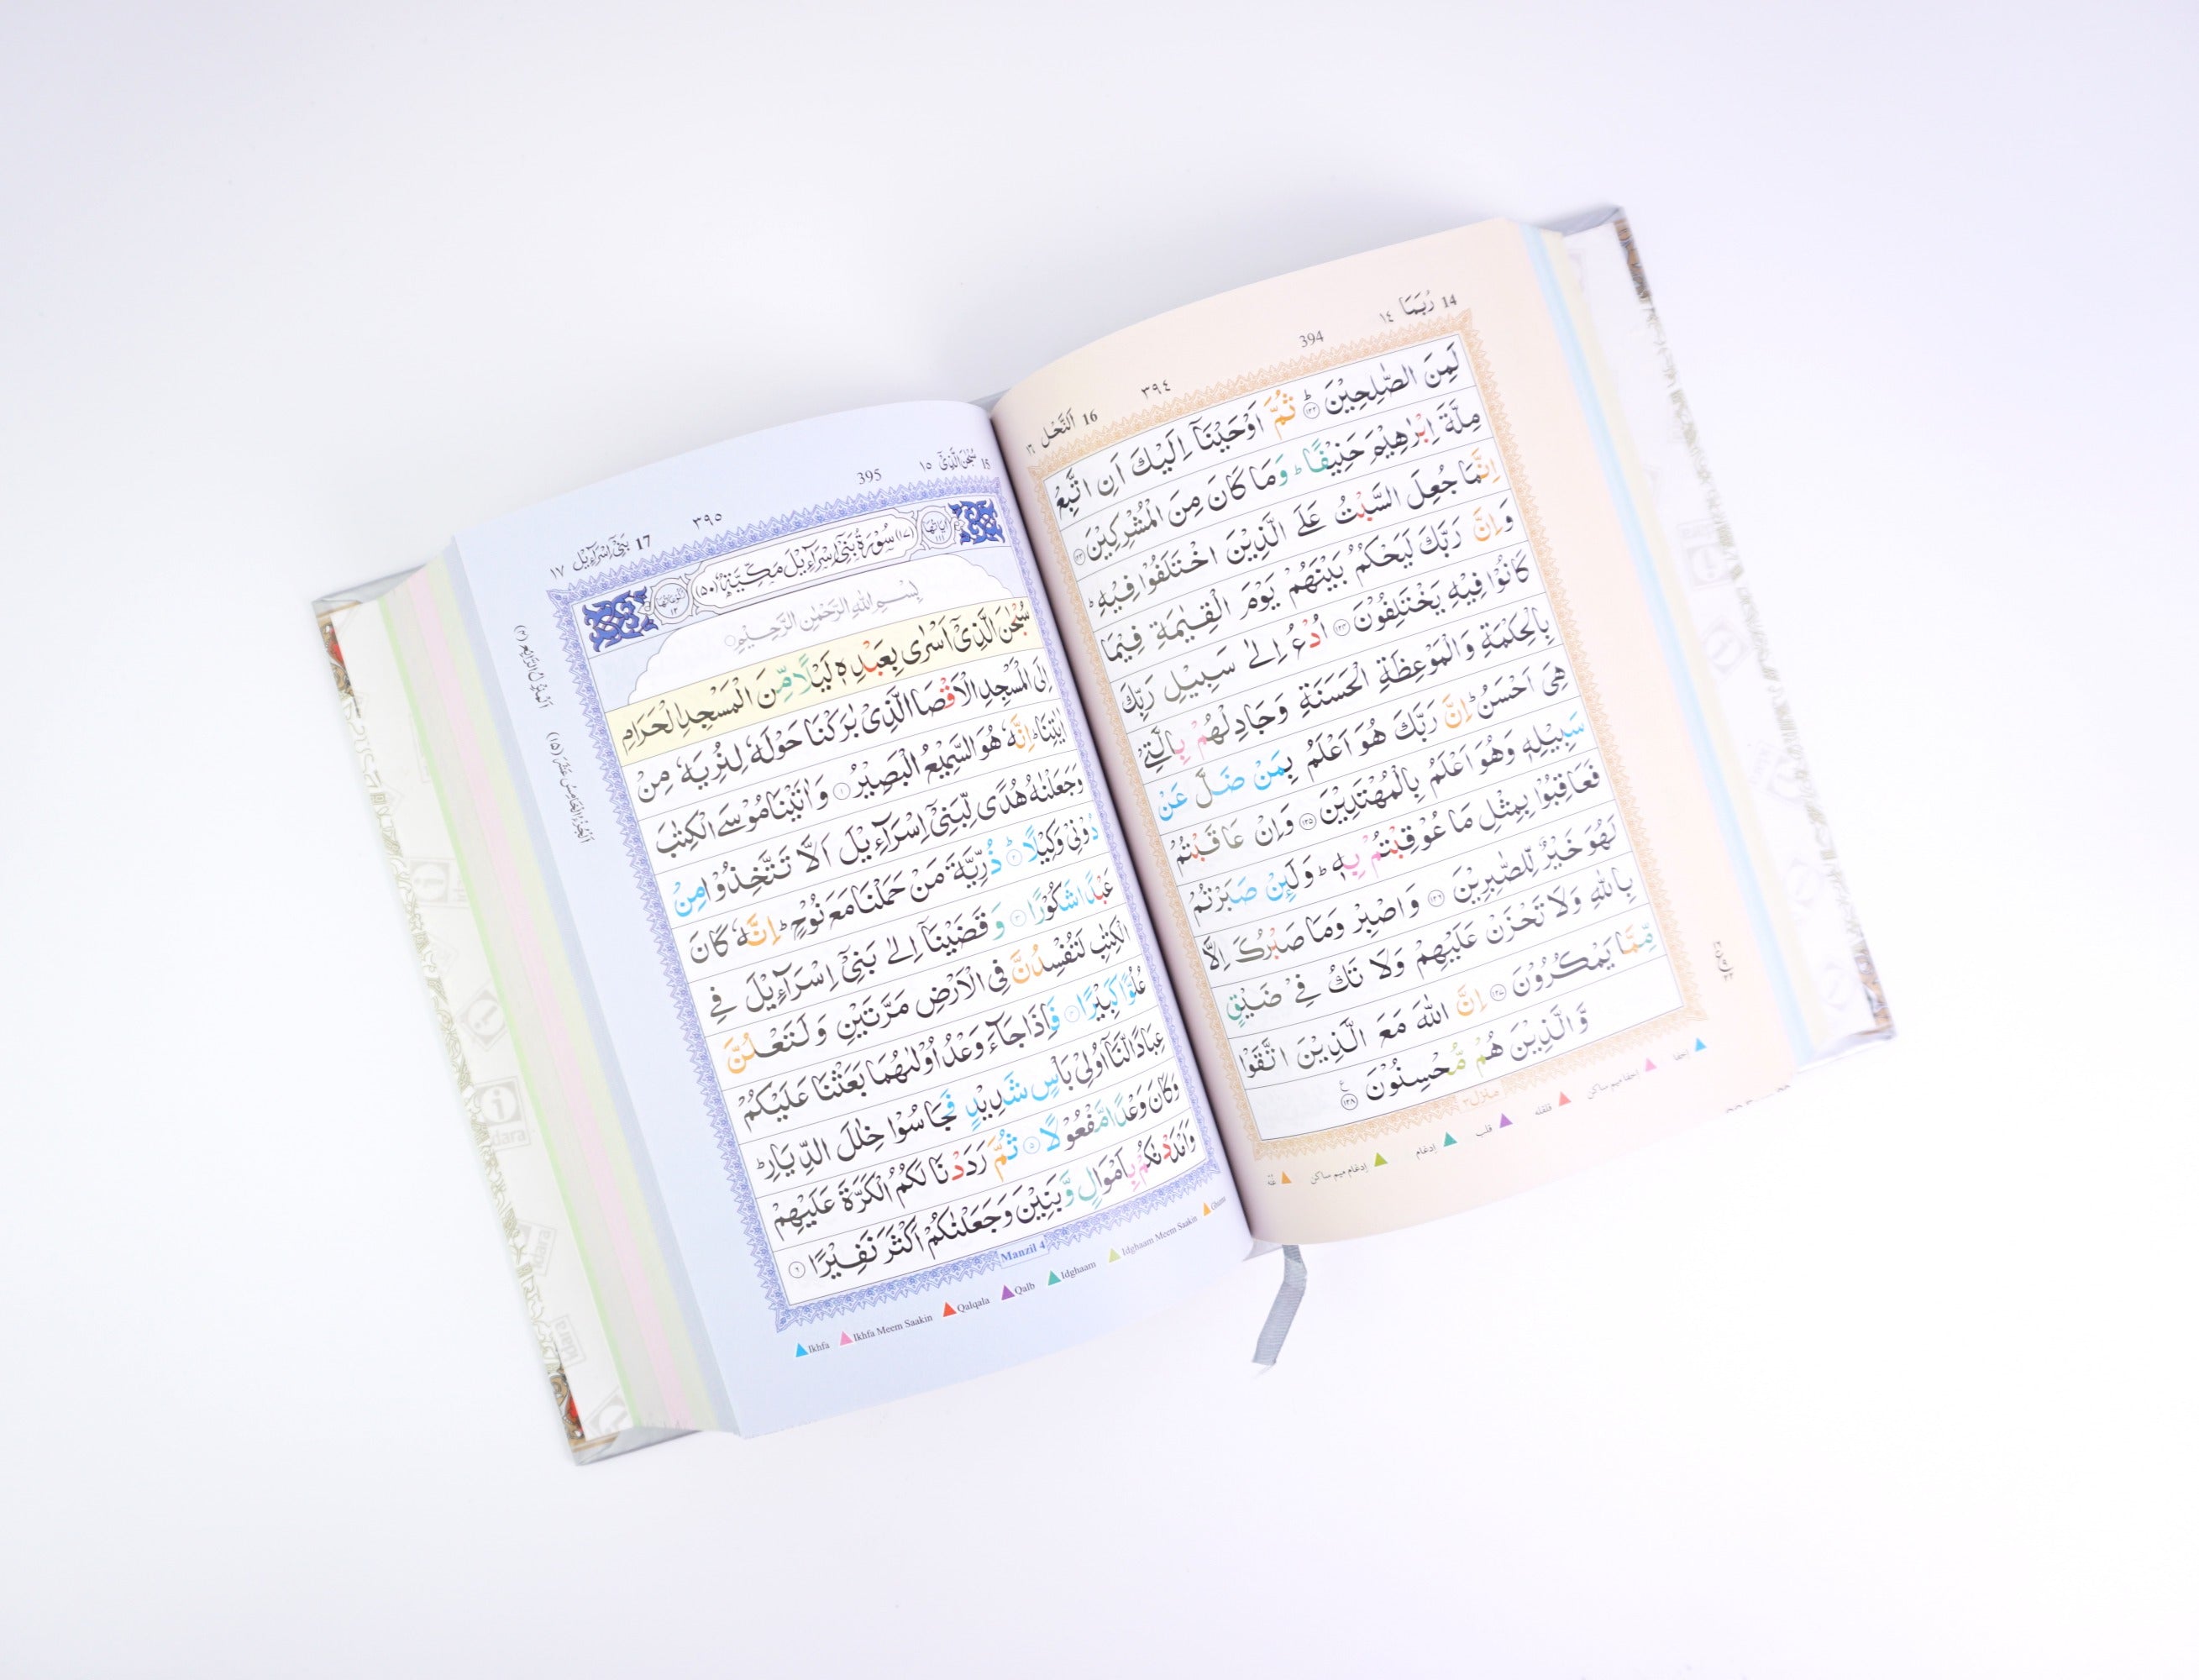 14 رُبَمَا ١٤
394
٣٩٤
16 اَلنَّحْل ١٦
لَمِنَ الصّٰلِحِيْنَ ؕ﴿۱۲۲﴾ ثُمَّ اَوْحَيْنَاۤ اِلَيْكَ اَنِ اتَّبِعْ
مِلَّةَ اِبْرٰهِيْمَ حَنِيْفًا ؕ وَمَا كَانَ مِنَ الْمُشْرِكِيْنَ ﴿۱۲۳﴾
اِنَّمَا جُعِلَ السَّبْتُ عَلَى الَّذِيْنَ اخْتَلَفُوْا فِيْهِ ؕ
وَاِنَّ رَبَّكَ لَيَحْكُمُ بَيْنَهُمْ يَوْمَ الْقِيٰمَةِ فِيْمَا
كَانُوْا فِيْهِ يَخْتَلِفُوْنَ ﴿۱۲۴﴾ اُدْعُ اِلٰى سَبِيْلِ رَبِّكَ
بِالْحِكْمَةِ وَالْمَوْعِظَةِ الْحَسَنَةِ وَجَادِلْهُمْ بِالَّتِيْ
هِيَ اَحْسَنُ ؕ اِنَّ رَبَّكَ هُوَ اَعْلَمُ بِمَنْ ضَلَّ عَنْ
سَبِيْلِهٖ وَهُوَ اَعْلَمُ بِالْمُهْتَدِيْنَ ﴿۱۲۵﴾ وَاِنْ عَاقَبْتُمْ
فَعَاقِبُوْا بِمِثْلِ مَا عُوْقِبْتُمْ بِهٖ ؕ وَلَئِنْ صَبَرْتُمْ
لَهُوَ خَيْرٌ لِّلصّٰبِرِيْنَ ﴿۱۲۶﴾ وَاصْبِرْ وَمَا صَبْرُكَ اِلَّا
بِاللّٰهِ وَلَا تَحْزَنْ عَلَيْهِمْ وَلَا تَكُ فِيْ ضَيْقٍ
مِّمَّا يَمْكُرُوْنَ ﴿۱۲۷﴾ اِنَّ اللّٰهَ مَعَ الَّذِيْنَ اتَّقَوْا
وَّالَّذِيْنَ هُمْ مُّحْسِنُوْنَ ﴿۱۲۸﴾ ع
منزل ٣
اخفا
اخفا ميم ساكن
قلقله
قلب
إدغام
إدغام ميم ساكن
غنّه
15 سُبْحٰنَ الَّذِيْۤ ١٥
395
٣٩٥
17 بَنِيْۤ اِسْرَآءِيْل ١٧
اٰيَاتُهَا ١١١
(١٧) سُوْرَةُ بَنِيْۤ اِسْرَآءِيْلَ مَكِّيَّةٌ (٥٠)
رُكُوْعَاتُهَا ١٢
بِسْمِ اللّٰهِ الرَّحْمٰنِ الرَّحِيْمِ
سُبْحٰنَ الَّذِيْۤ اَسْرٰى بِعَبْدِهٖ لَيْلًا مِّنَ الْمَسْجِدِ الْحَرَامِ
اِلَى الْمَسْجِدِ الْاَقْصَا الَّذِيْ بٰرَكْنَا حَوْلَهٗ لِنُرِيَهٗ مِنْ
اٰيٰتِنَا ؕ اِنَّهٗ هُوَ السَّمِيْعُ الْبَصِيْرُ ﴿۱﴾ وَاٰتَيْنَا مُوْسَى الْكِتٰبَ
وَجَعَلْنٰهُ هُدًى لِّبَنِيْۤ اِسْرَآءِيْلَ اَلَّا تَتَّخِذُوْا مِنْ
دُوْنِيْ وَكِيْلًا ؕ﴿۲﴾ ذُرِّيَّةَ مَنْ حَمَلْنَا مَعَ نُوْحٍ ؕ اِنَّهٗ كَانَ
عَبْدًا شَكُوْرًا ﴿۳﴾ وَقَضَيْنَاۤ اِلٰى بَنِيْۤ اِسْرَآءِيْلَ فِي
الْكِتٰبِ لَتُفْسِدُنَّ فِي الْاَرْضِ مَرَّتَيْنِ وَلَتَعْلُنَّ
عُلُوًّا كَبِيْرًا ﴿۴﴾ فَاِذَا جَآءَ وَعْدُ اُوْلٰىهُمَا بَعَثْنَا عَلَيْكُمْ
عِبَادًا لَّنَاۤ اُولِيْ بَاْسٍ شَدِيْدٍ فَجَاسُوْا خِلٰلَ الدِّيَارِ ؕ
وَكَانَ وَعْدًا مَّفْعُوْلًا ﴿۵﴾ ثُمَّ رَدَدْنَا لَكُمُ الْكَرَّةَ عَلَيْهِمْ
وَاَمْدَدْنٰكُمْ بِاَمْوَالٍ وَّبَنِيْنَ وَجَعَلْنٰكُمْ اَكْثَرَ نَفِيْرًا ﴿۶﴾
Manzil 4
Ikhfa
Ikhfa Meem Saakin
Qalqala
Qalb
Idghaam
Idghaam Meem Saakin
Ghunna
اَلْمَنْزِلُ الرَّابِعُ (٤)
اَلْجُزْءُ الْخَامِسُ عَشَرَ (١٥)